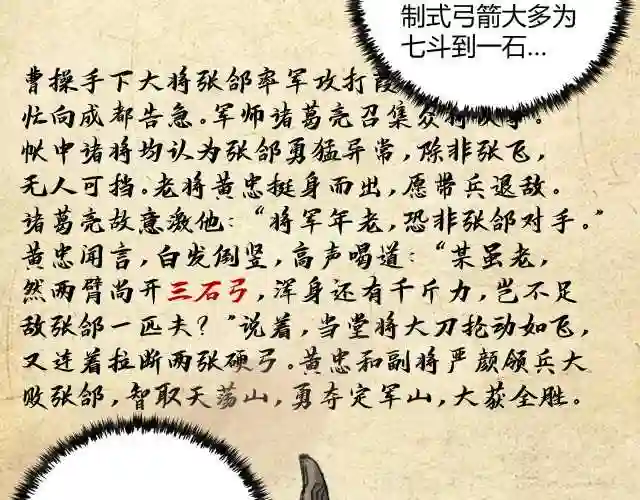 制式弓箭大多为
七斗到一石...
曹操手下大将张郃率军攻打葭
忙向成都告急。军师诸葛亮召集众
帐中诸将均认为张郃勇猛异常,除非张飞,
无人可挡。老将黄忠挺身而出,愿带兵退敌。
诸葛亮故意激他:“将军年老,恐非张郃对手。”
黄忠闻言,白发倒竖,高声喝道:“某虽老,
然两臂尚开三石弓,浑身还有千斤力,岂不足
敌张郃一匹夫?”说着,当堂将大刀抡动如飞,
又连着拉断两张硬弓。黄忠和副将严颜领兵大
败张郃,智取天荡山,勇夺定军山,大获全胜。